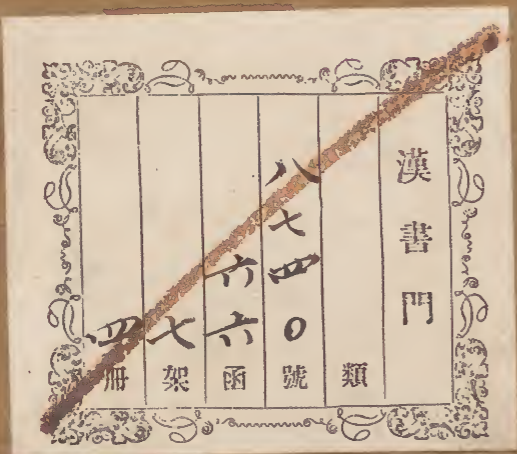 漢書門
類
八七四〇號
六六函
七架
四冊